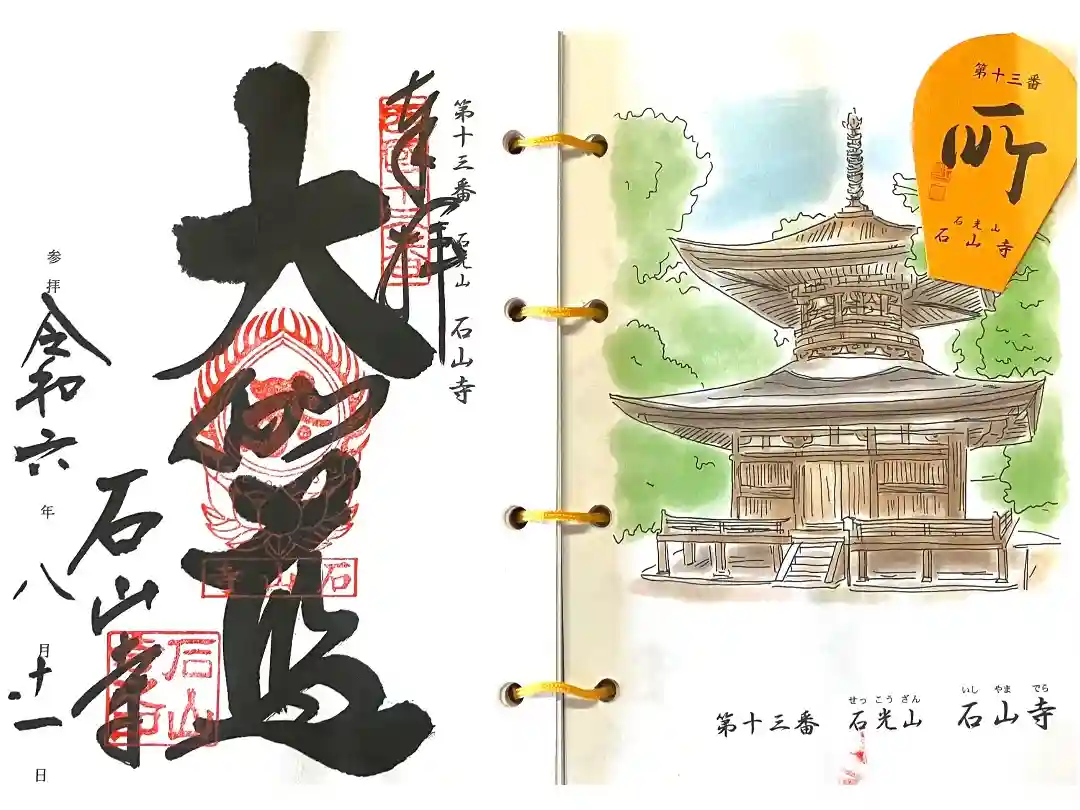 第十三番 石光山 石山寺
奉拝
西国十三番
大伽藍
石山寺
石山寺
石山寺印
参拝 令和六年八月十一日
第十三番
所
石光山
石山寺
せっこうざん いしやまでら
第十三番 石光山 石山寺